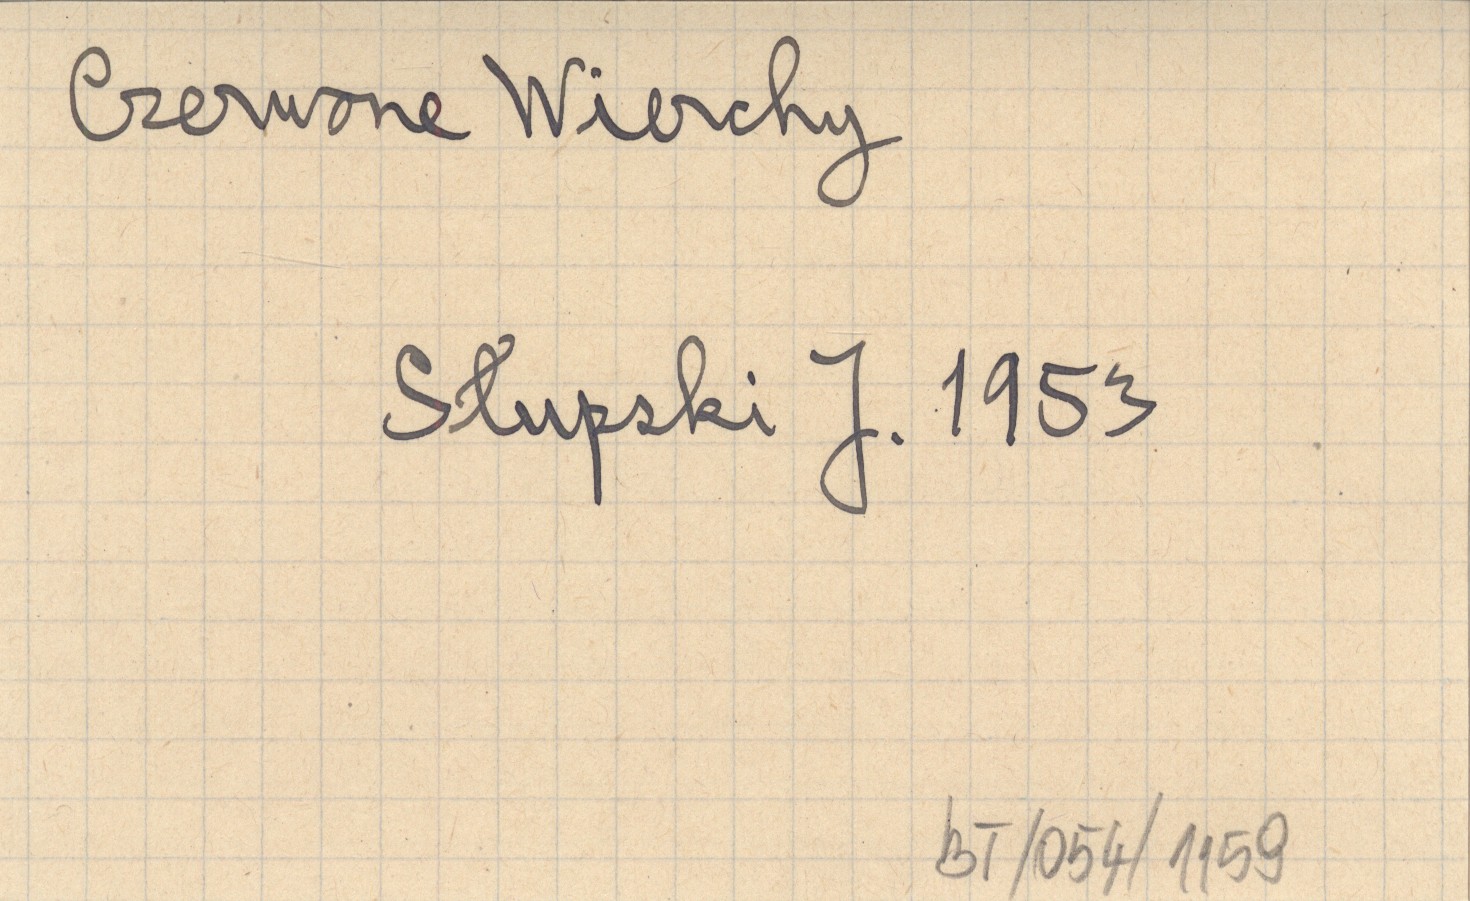 Czerwone Wierchy
Słupski J. 1953
BT/054/1159